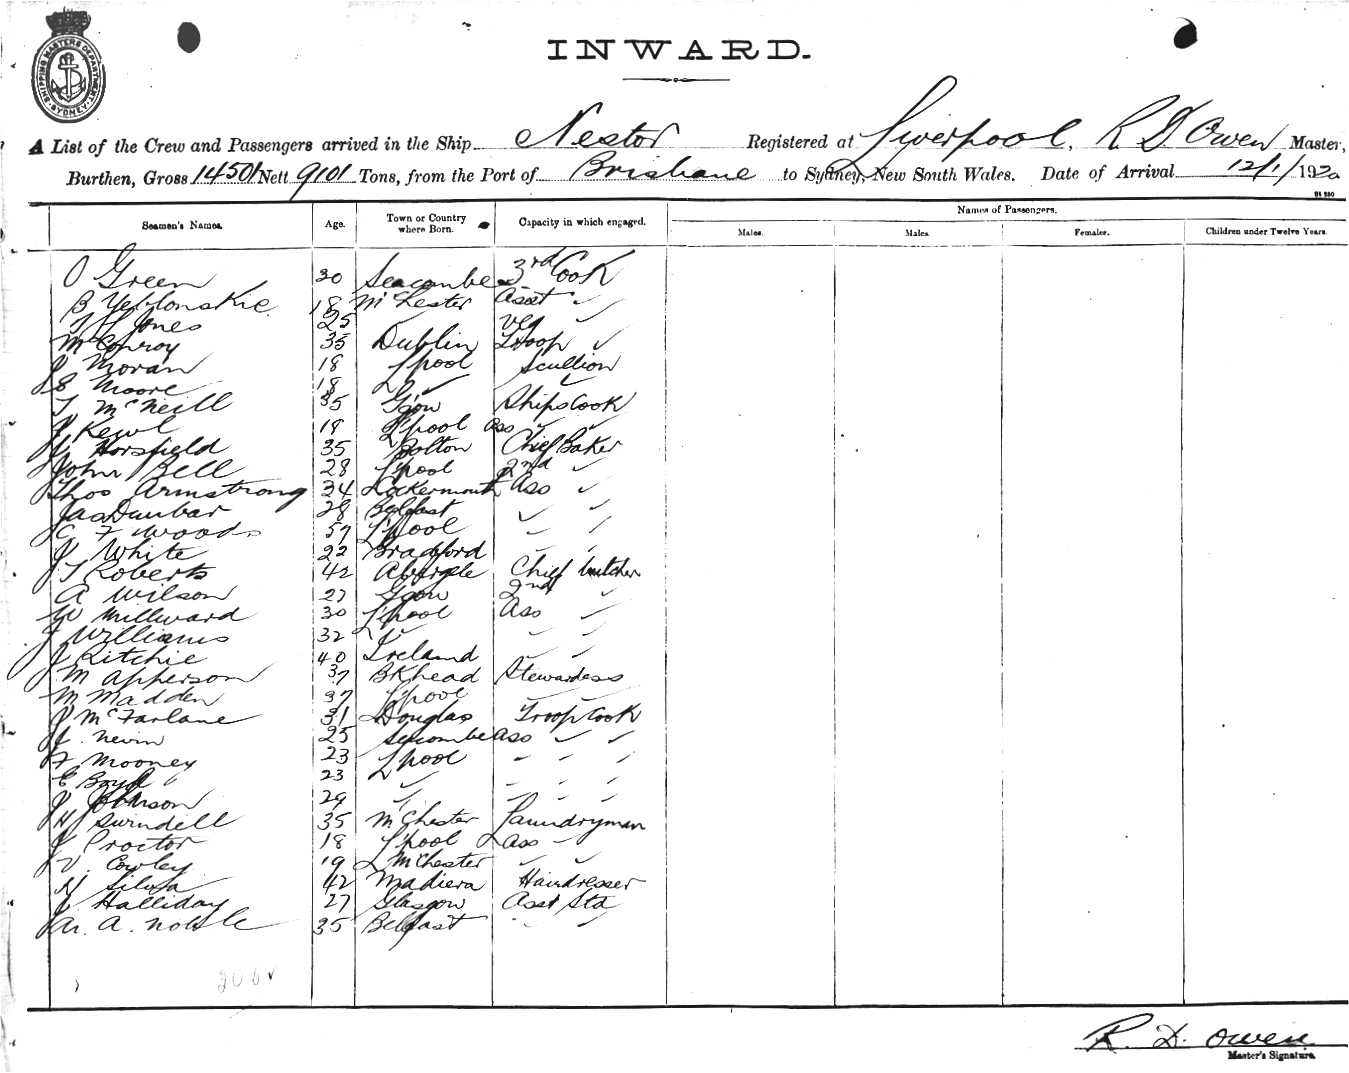 SHIPPING MASTERS DEPARTMENT SYDNEY
INWARD.
A List of the Crew and Passengers arrived in the Ship Nestor Registered at Liverpool, R D Owen Master,
Burthen, Gross 14501 Nett 9101 Tons, from the Port of Brisbane to Sydney, New South Wales. Date of Arrival 12/1/1920
Names of Passengers.
Seamen's Names. Age. Town or Country where Born. Capacity in which engaged. Males. Males. Females. Children under Twelve Years.
O Green 30 Seacombe 3rd Cook
B Yeblonskie 18 McChester Asst ✓
T H Jones 25 ✓ Veg ✓
M Conroy 35 Dublin Troop ✓
J Moran 18 L'pool Scullion
J S Moore 18 ✓ ✓
T McNeill 35 G'gow Ships Cook
J Kewl 19 L'pool Ass ✓ ✓
J Horsfield 35 Bolton Chief Baker
John Bell 28 L'pool 2nd ✓
Thos Armstrong 34 Cockermouth Ass ✓
Jas Dunbar 28 Belfast ✓ ✓
C F Woods 57 L'pool ✓ ✓
J White 22 Bradford ✓ ✓
J T Roberts 42 Abergele Chief butcher
A Wilson 27 G'gow 2nd ✓
W Millward 30 L'pool Ass ✓
J Williams 32 ✓ ✓ ✓
J Ritchie 40 Ireland ✓ ✓
M Apperson 37 BKhead Stewardess
M Madden 37 L'pool ✓ ✓
J McFarlane 31 Douglas Troop Cook
J Nevin 25 Secombe Ass ✓ ✓
F Mooney 23 L'pool ✓ ✓ ✓
E Boyd 23 ✓ ✓ ✓ ✓
J Johnson 29 ✓ ✓ ✓ ✓
H Swindell 35 McChester Laundryman
J Proctor 18 L'pool Ass ✓
V. Cowley 19 McChester ✓ ✓
M Silva 42 Madiera Hairdresser
J Halliday 27 Glasgow Asst Std
A. Noble 35 Belfast ✓ ✓
R. D. Owen
Master's Signature.